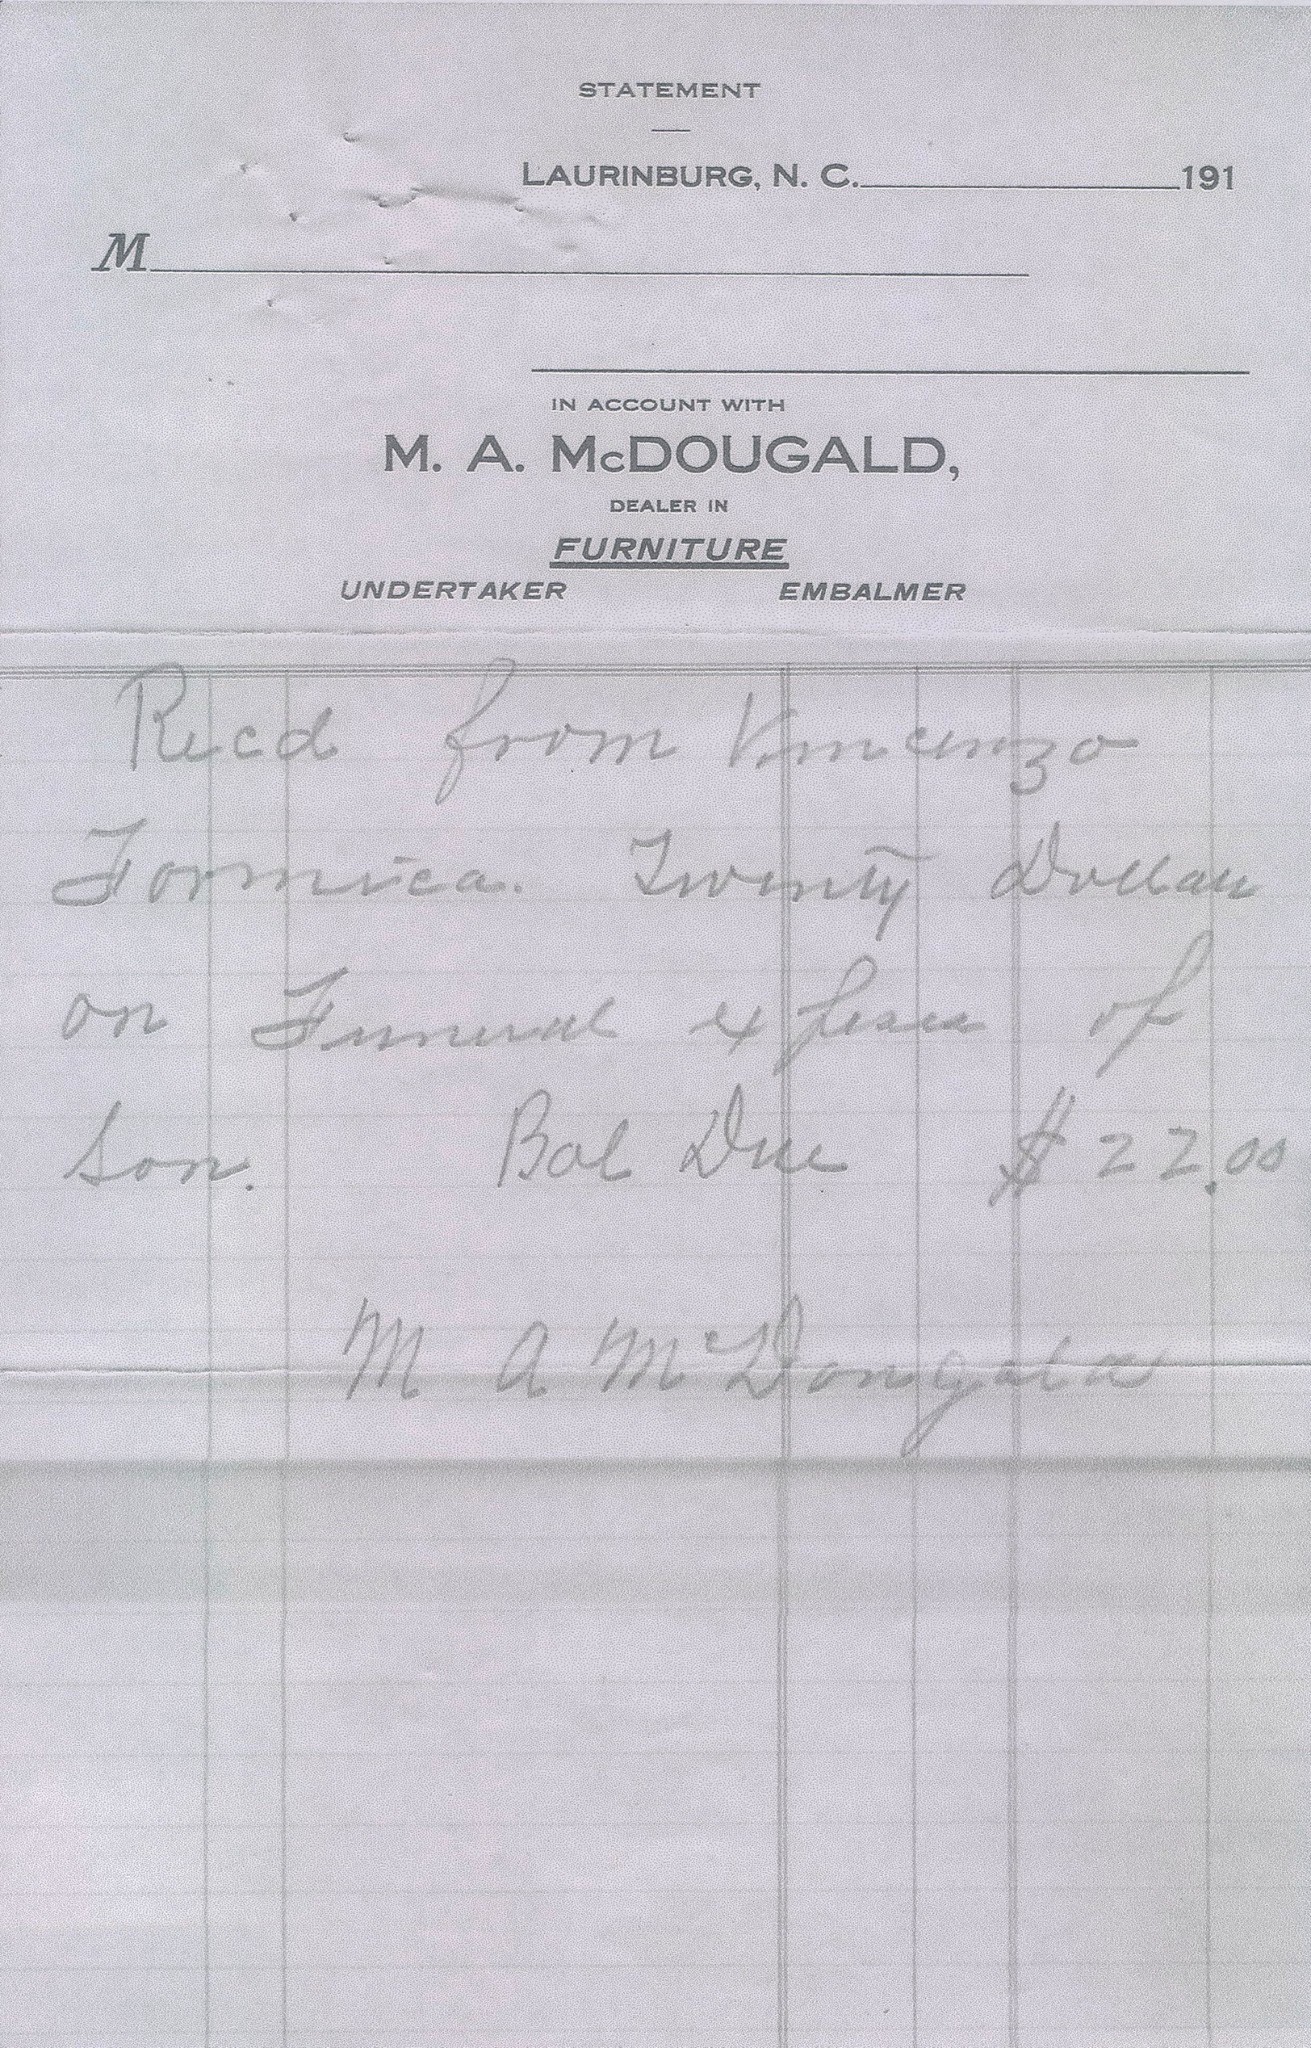 STATEMENT
LAURINBURG, N. C. 191
M
IN ACCOUNT WITH
M. A. McDOUGALD,
DEALER IN
FURNITURE
UNDERTAKER EMBALMER
Recd from Vincenzo
Formica. Twenty Dollars
on Funeral expenses of
son. Bal Due $22.00
M A McDougald